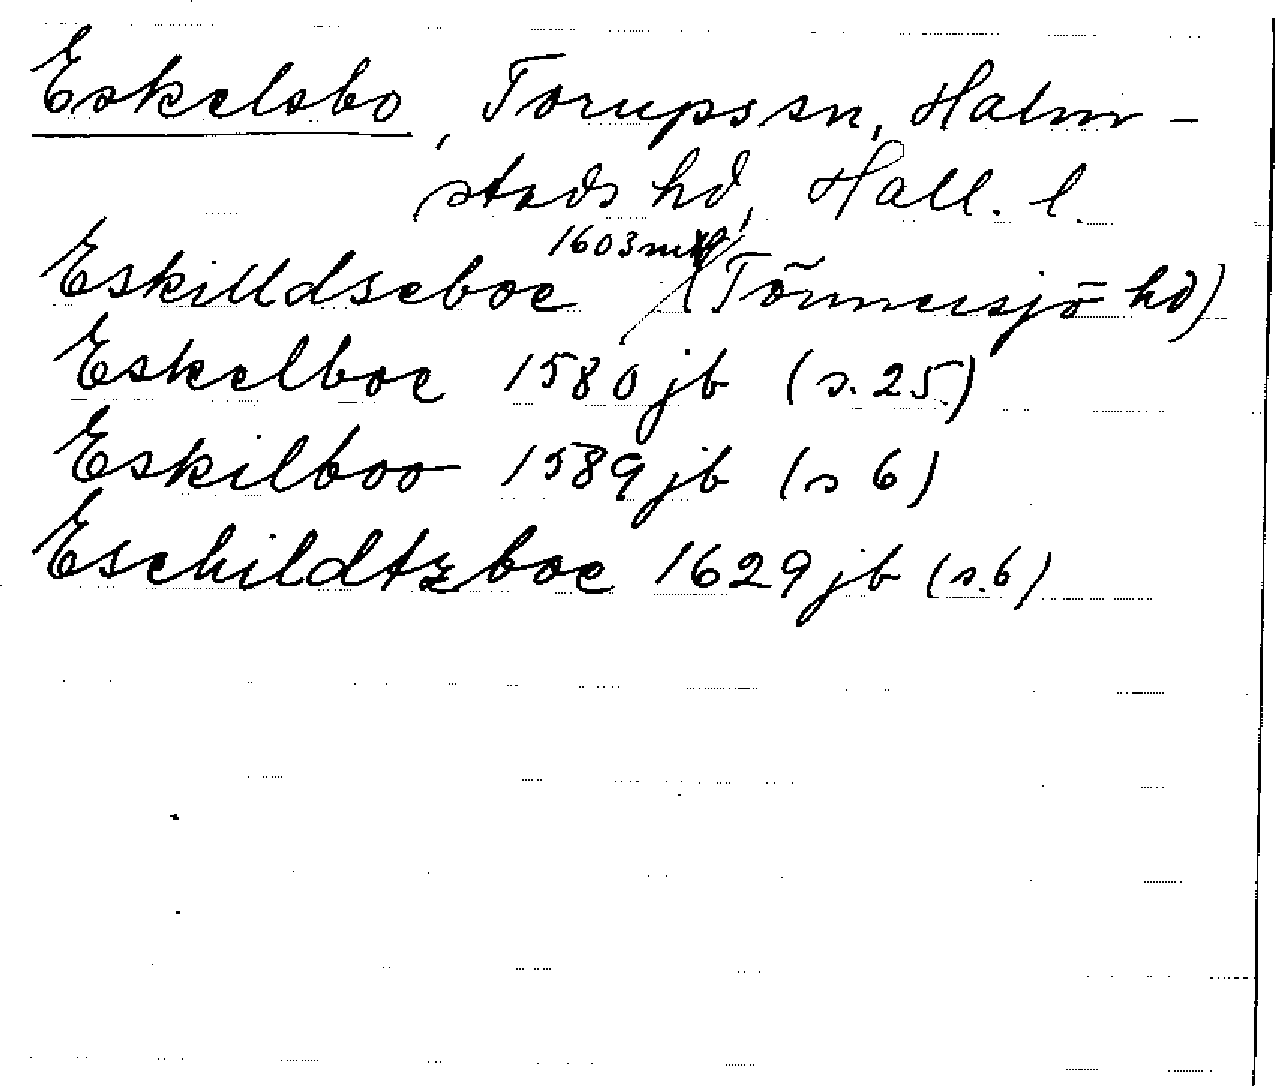 Eskelsbo, Torups sn, Halm-
stads hd, Hall. l.
1603
Eskilldseboe (Tönnersjö hd)
Eskelboe 1580 jb (s. 25)
Eskilboo 1589 jb (s 6)
Eschildtzboe 1629 jb (s. 6)